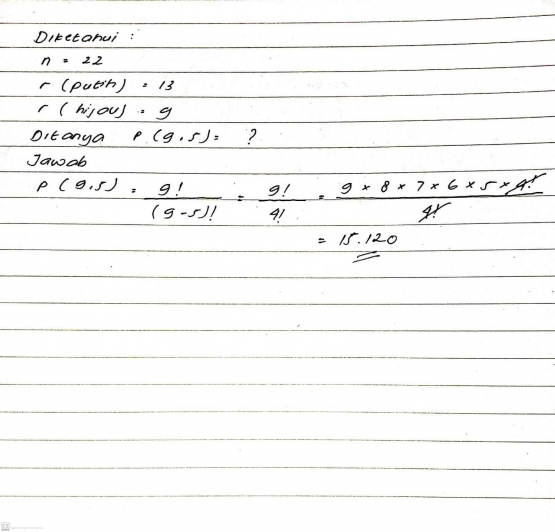 Diketahui :
n = 22
r (putih) = 13
r (hijau) = 9
Ditanya P (9,5) = ?
Jawab
P (9,5) = 9! / (9-5)! = 9! / 4! = 9 x 8 x 7 x 6 x 5 x 4! / 4!
= 15.120